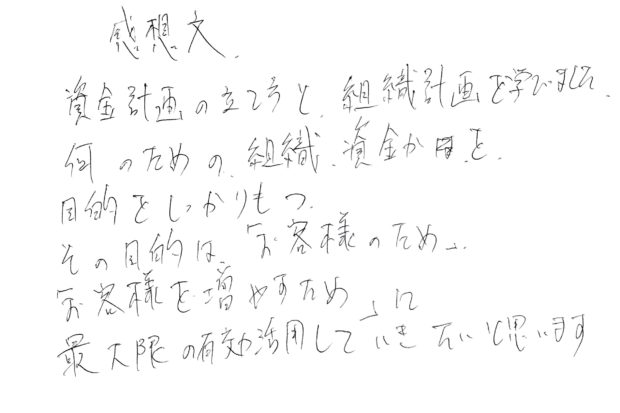 感想文.
資金計画の立て方と、組織計画を学びました.
何のための、組織、資金か を、
目的をしっかりもつ.
その目的は、「お客様のため」、
「お客様を増やすため」に
最大限の有効活用していきたいと思います